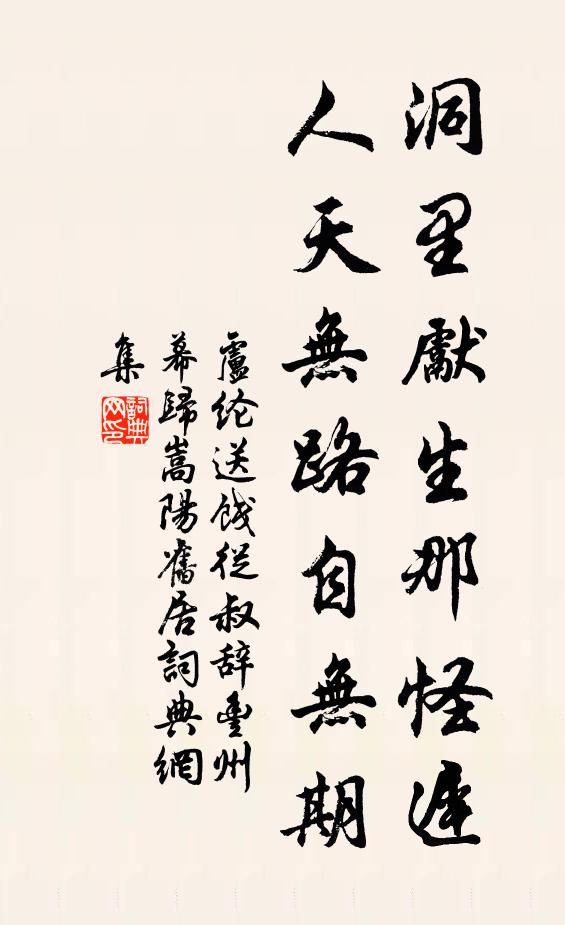 洞里獻生那怪遲
人天無路自無期
盧纶送餞從叔辞豊州
幕歸嵩陽舊居詞典網
集
詞典网印